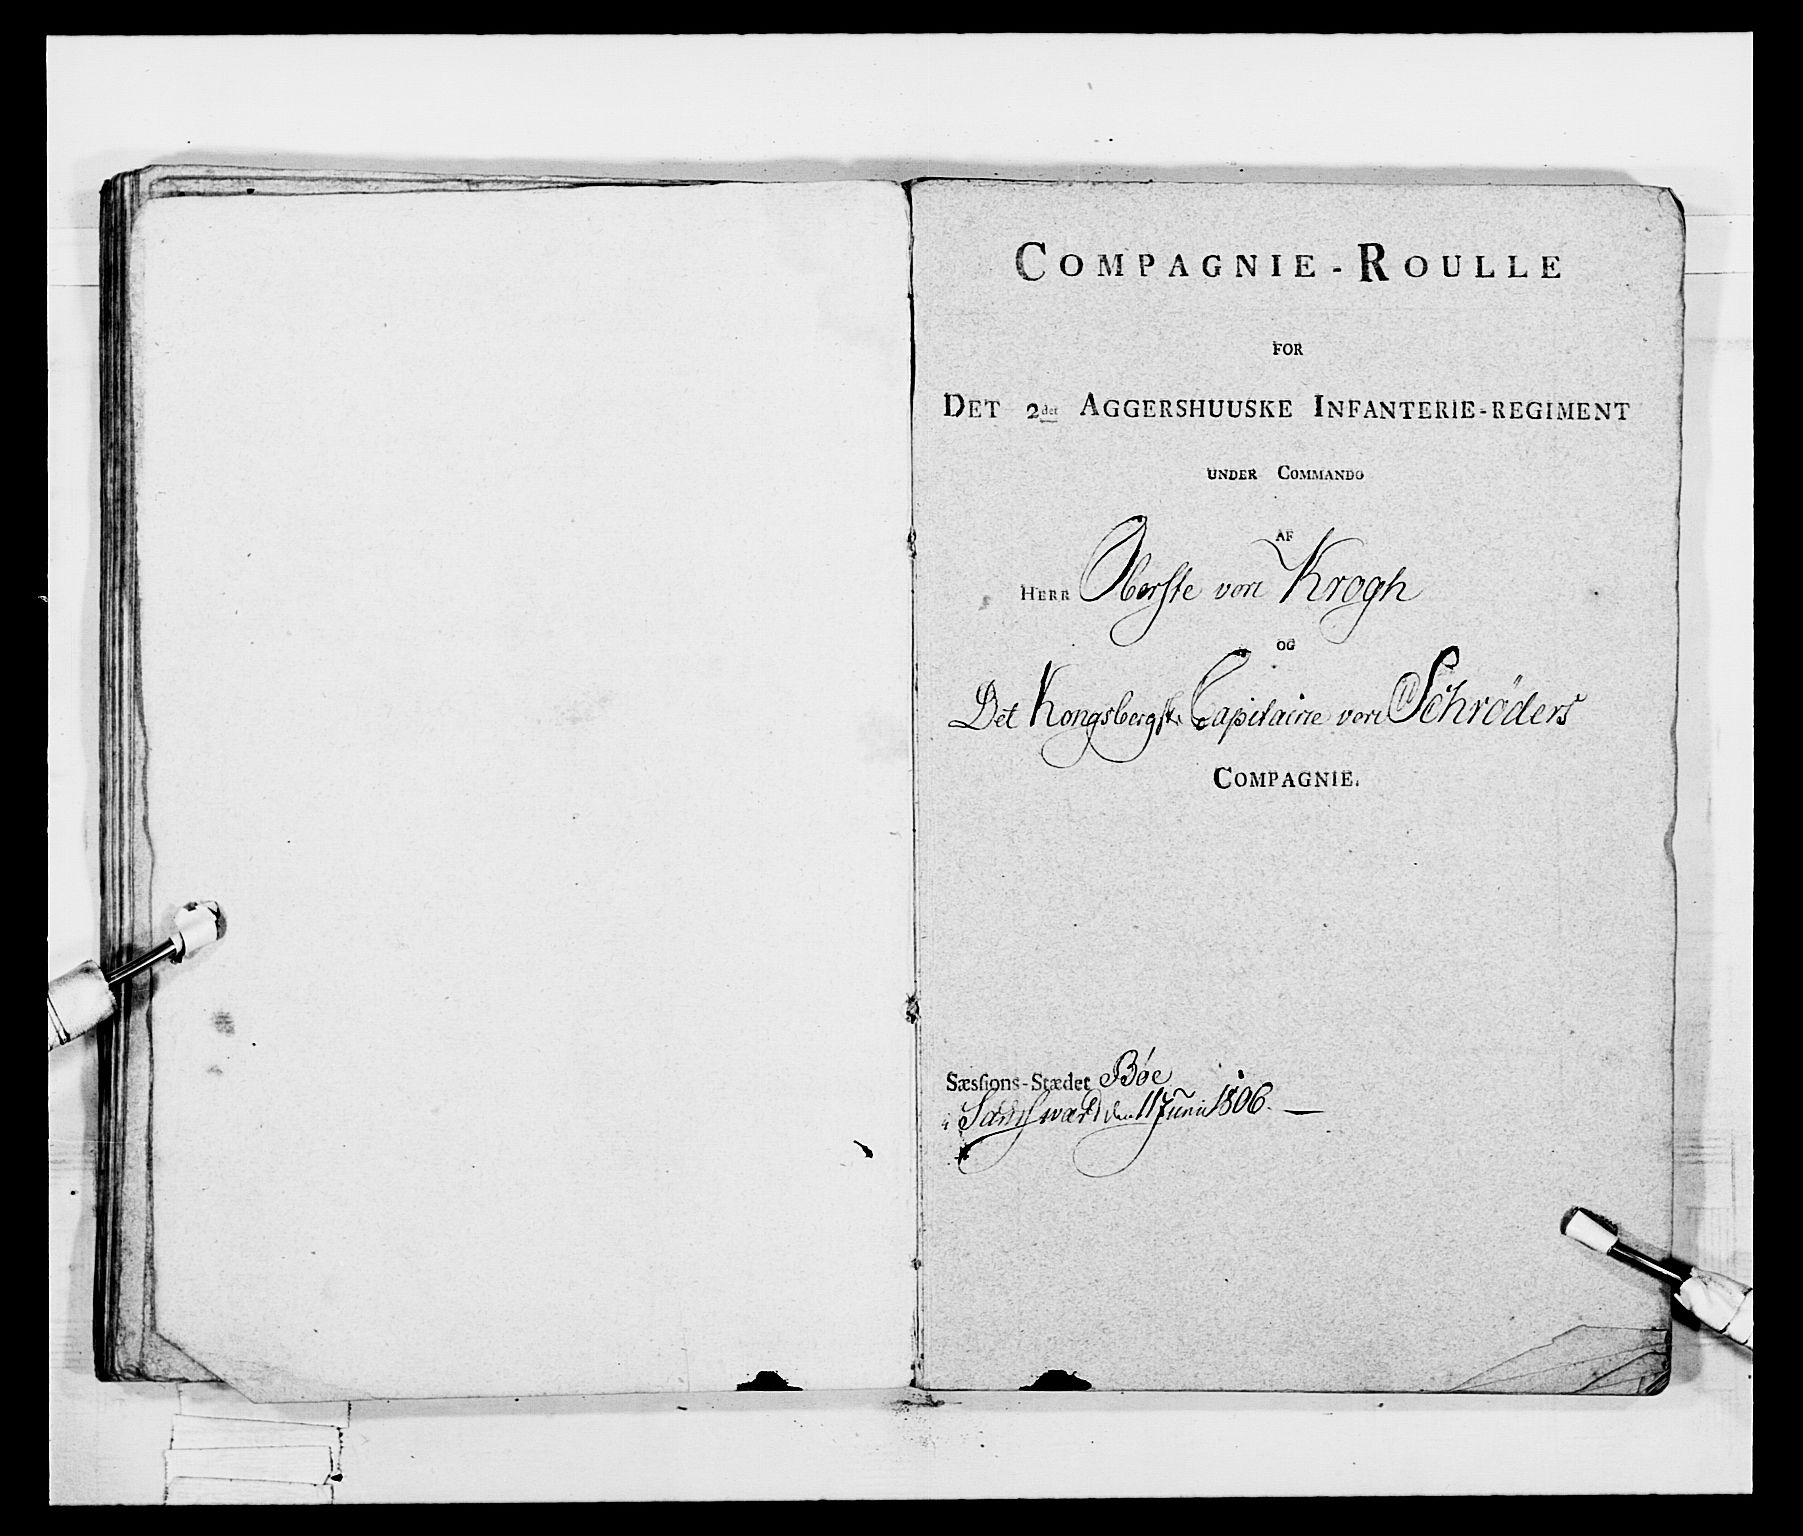 COMPAGNIE-ROULLE
FOR
DET 2det AGGERSHUUSKE INFANTERIE-REGIMENT
UNDER COMMANDO
AF
HERR Oberste von Krogh
OG
Det Kongsbergske Capitaine von Schrøders
COMPAGNIE.
Sæssions-Stædet Bøe
i Sandswærd den 11 Junii 1806. —